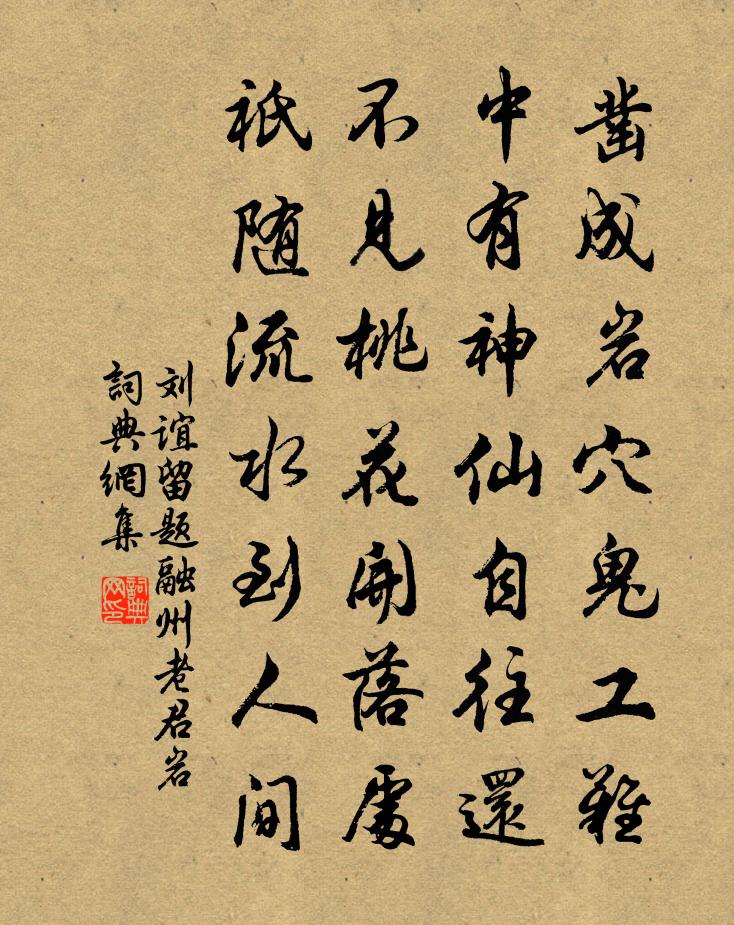 凿成岩穴鬼工難
中有神仙自往還
不見桃花開落處
祇随流水到人間
刘谊留题融州老君岩
詞典網集
詞典网印